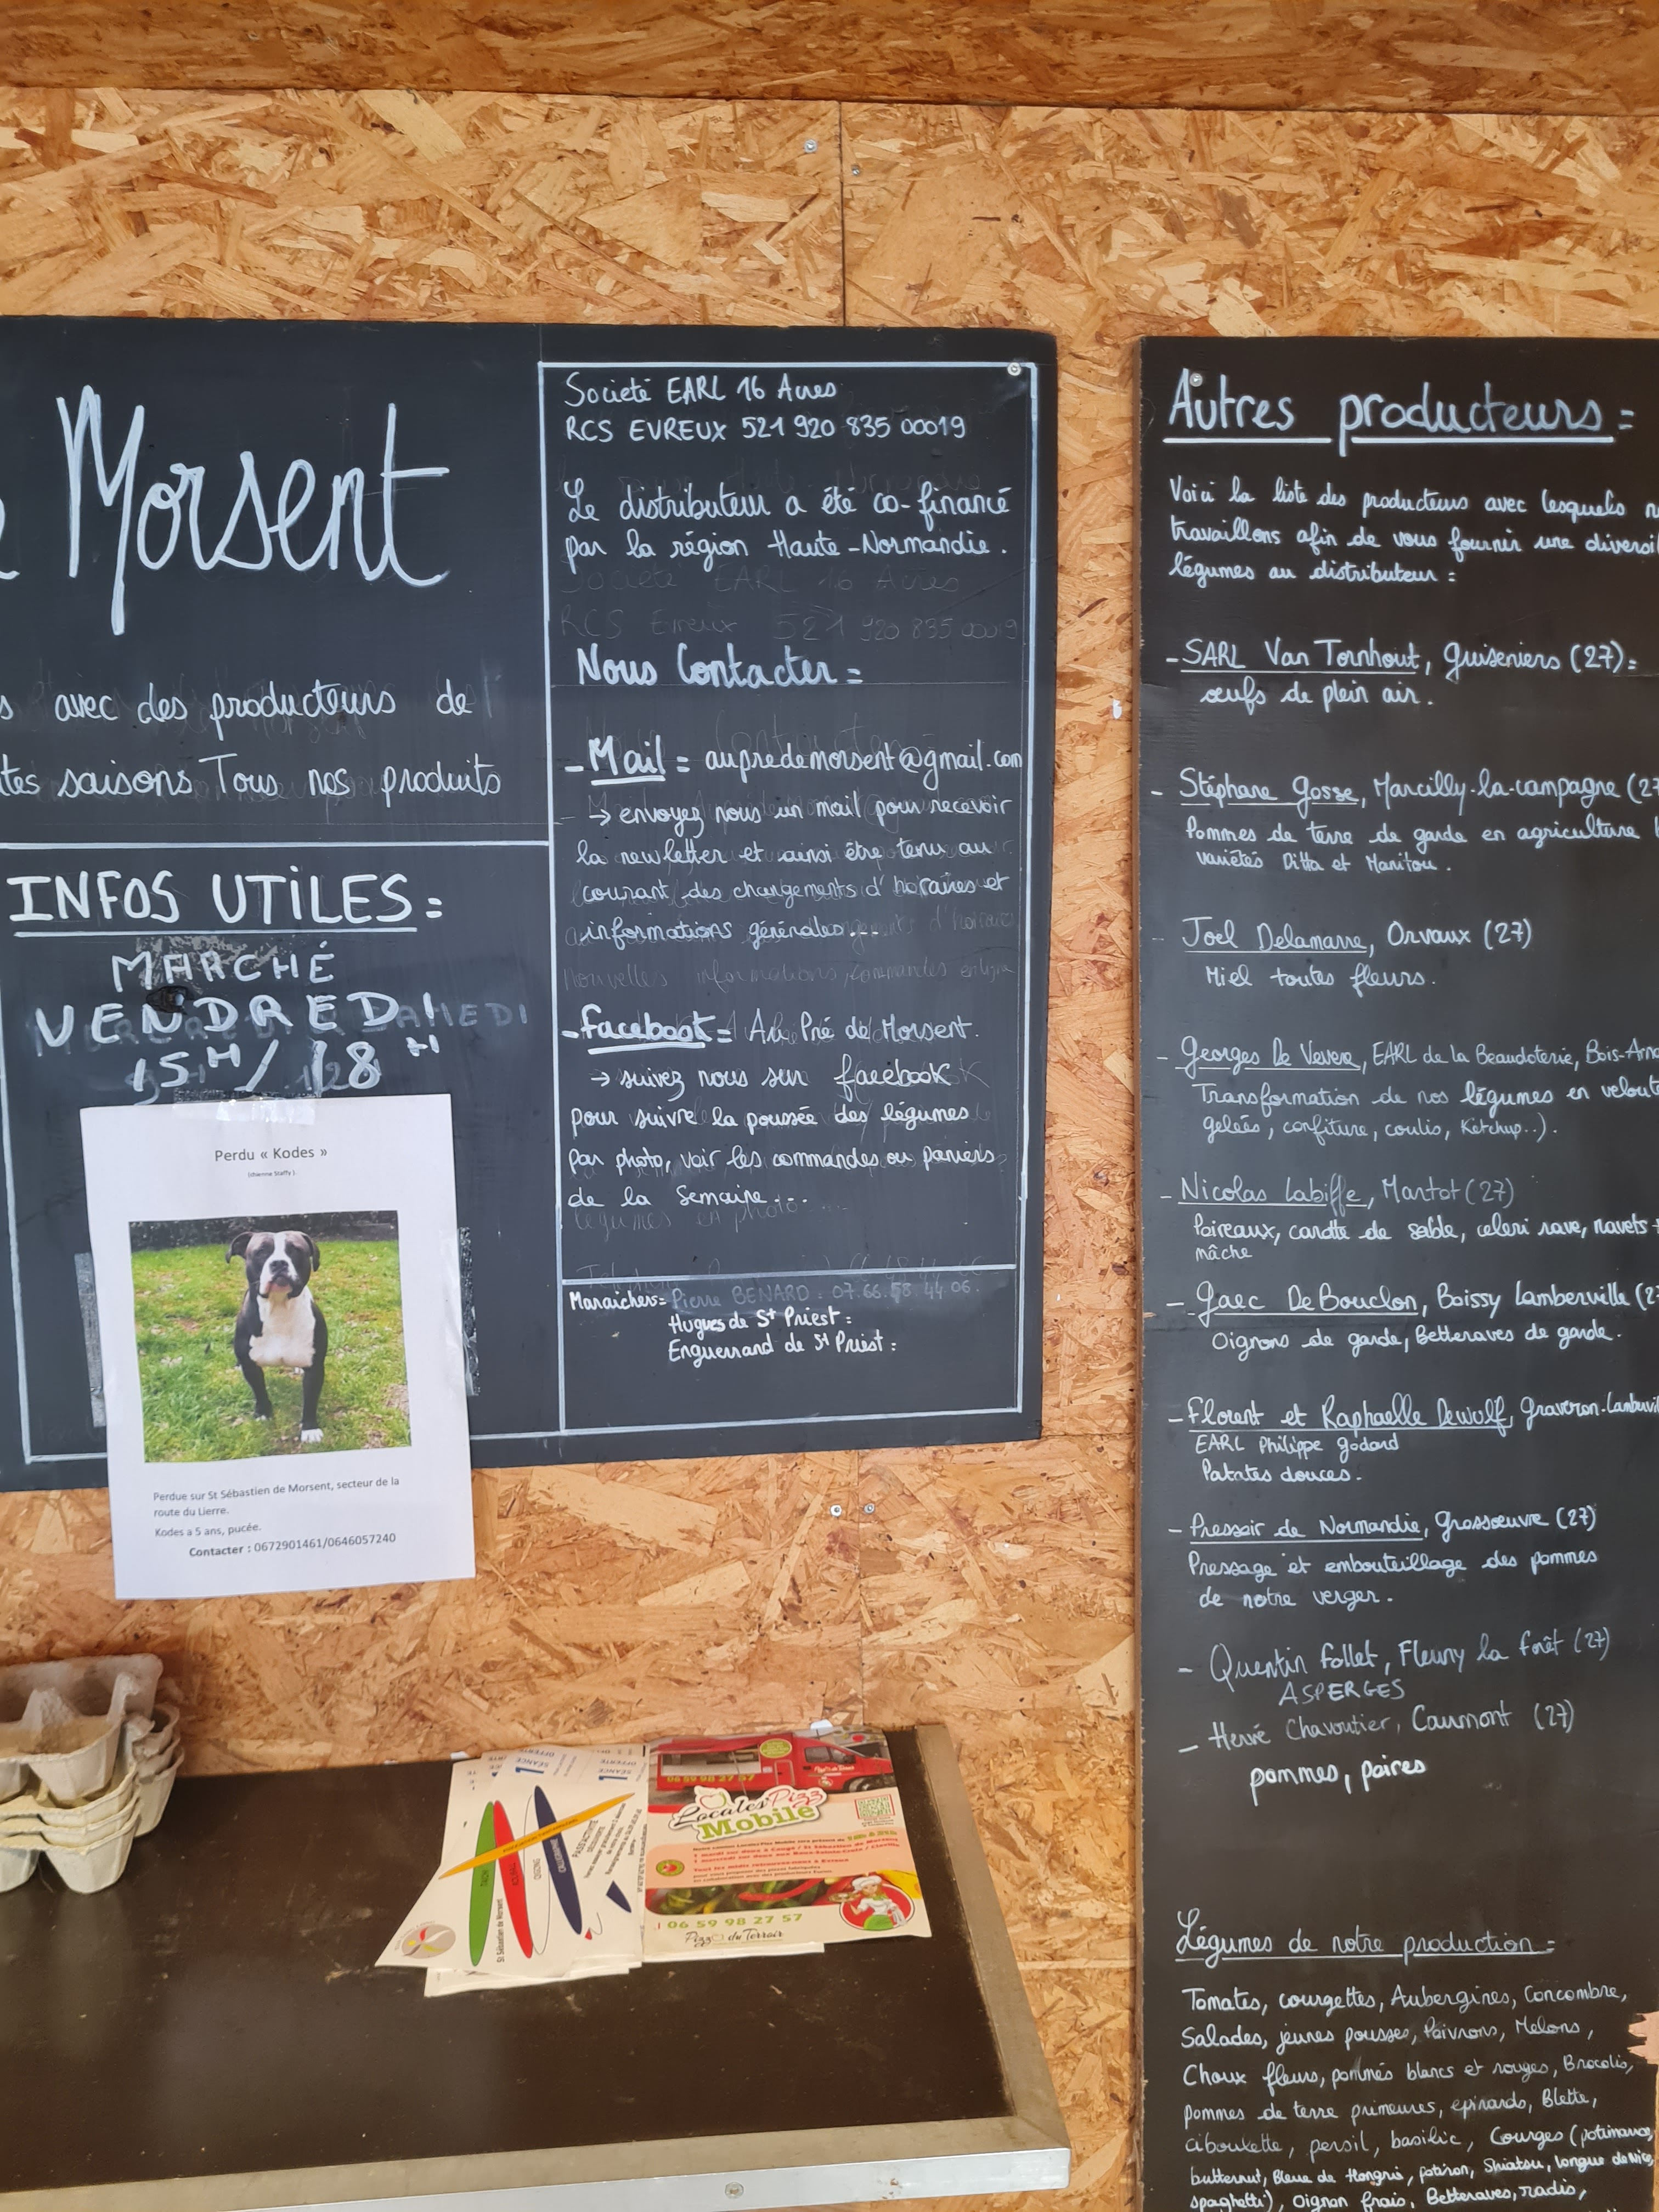 Morsent
avec des producteurs de
saisons Tous nos produits
INFOS UTILES :
MARCHÉ
VENDREDI
15H/18H
Perdu « Kodes »
(chienne Staffy)
Perdue sur St Sébastien de Morsent, secteur de la
route du Lierre.
Kodes a 5 ans, pucée.
Contacter : 0672901461/0646057240
Societé EARL 16 Acres
RCS EVREUX 521 920 835 00019
Le distributeur a été co-financé
par la région Haute-Normandie.
Nous Contacter =
- Mail = aupredemorsent@gmail.com
→ envoyez nous un mail pour recevoir
la newletter et ainsi être tenu au
courant des changements d'horaires et
informations générales...
- Facebook = Au Pré de Morsent.
→ suivez nous sur facebook
pour suivre la poussée des légumes
par photo, voir les commandes ou paniers
de la semaine...
Maraichers = Pierre BENARD : 07.66.58.44.06.
Hugues de St Priest :
Enguerrand de St Priest :
Autres producteurs =
Voici la liste des producteurs avec lesquels
travaillons afin de vous fournir une
légumes au distributeur :
- SARL Van Tornhout, Guiseniers (27) =
œufs de plein air.
- Stéphane Gosse, Marcilly-la-campagne (27
Pommes de terre de garde en agriculture
variétés Ditta et Manitou.
- Joel Delamare, Orvaux (27)
Miel toutes fleurs.
- Georges De Vevere, EARL de la Beaudoterie,
Transformation de nos légumes en
gelées, confiture, coulis, Ketchup..).
- Nicolas Labiffe, Martot (27)
Poireaux, carotte de sable, celeri rave, navets +
mâche
- Gaec De Bouclon, Boissy Lamberville
Oignons de garde, Betteraves de garde.
- Florent et Raphaelle Dewulf,
EARL Philippe Godard
Patates douces.
- Pressoir de Normandie, Grossœuvre (27)
Pressage et embouteillage des pommes
de notre verger.
- Quentin Follet, Fleury la forêt (27)
ASPERGES
- Hervé Chavoutier, Caumont (27)
pommes, poires
Légumes de notre production =
Tomates, courgettes, Aubergines, Concombre,
Salades, jeunes pousses, Poivrons, Melons,
Choux fleurs, pommés blancs et rouges, Brocolis,
pommes de terre primeures, epinards, Blette,
ciboulette, persil, basilic, Courges (potimarron,
butternut, Bleue de Hongrie, potiron, Shiatsu, longue de Nice,
spaghetti), Oignon frais, Betteraves, radis,
1 SÉANCE
OFFERTE
St Sébastien de Morsent
06 59 98 27 57
Locales'Pizz
Mobile
06 59 98 27 57
Pizz du Terroir